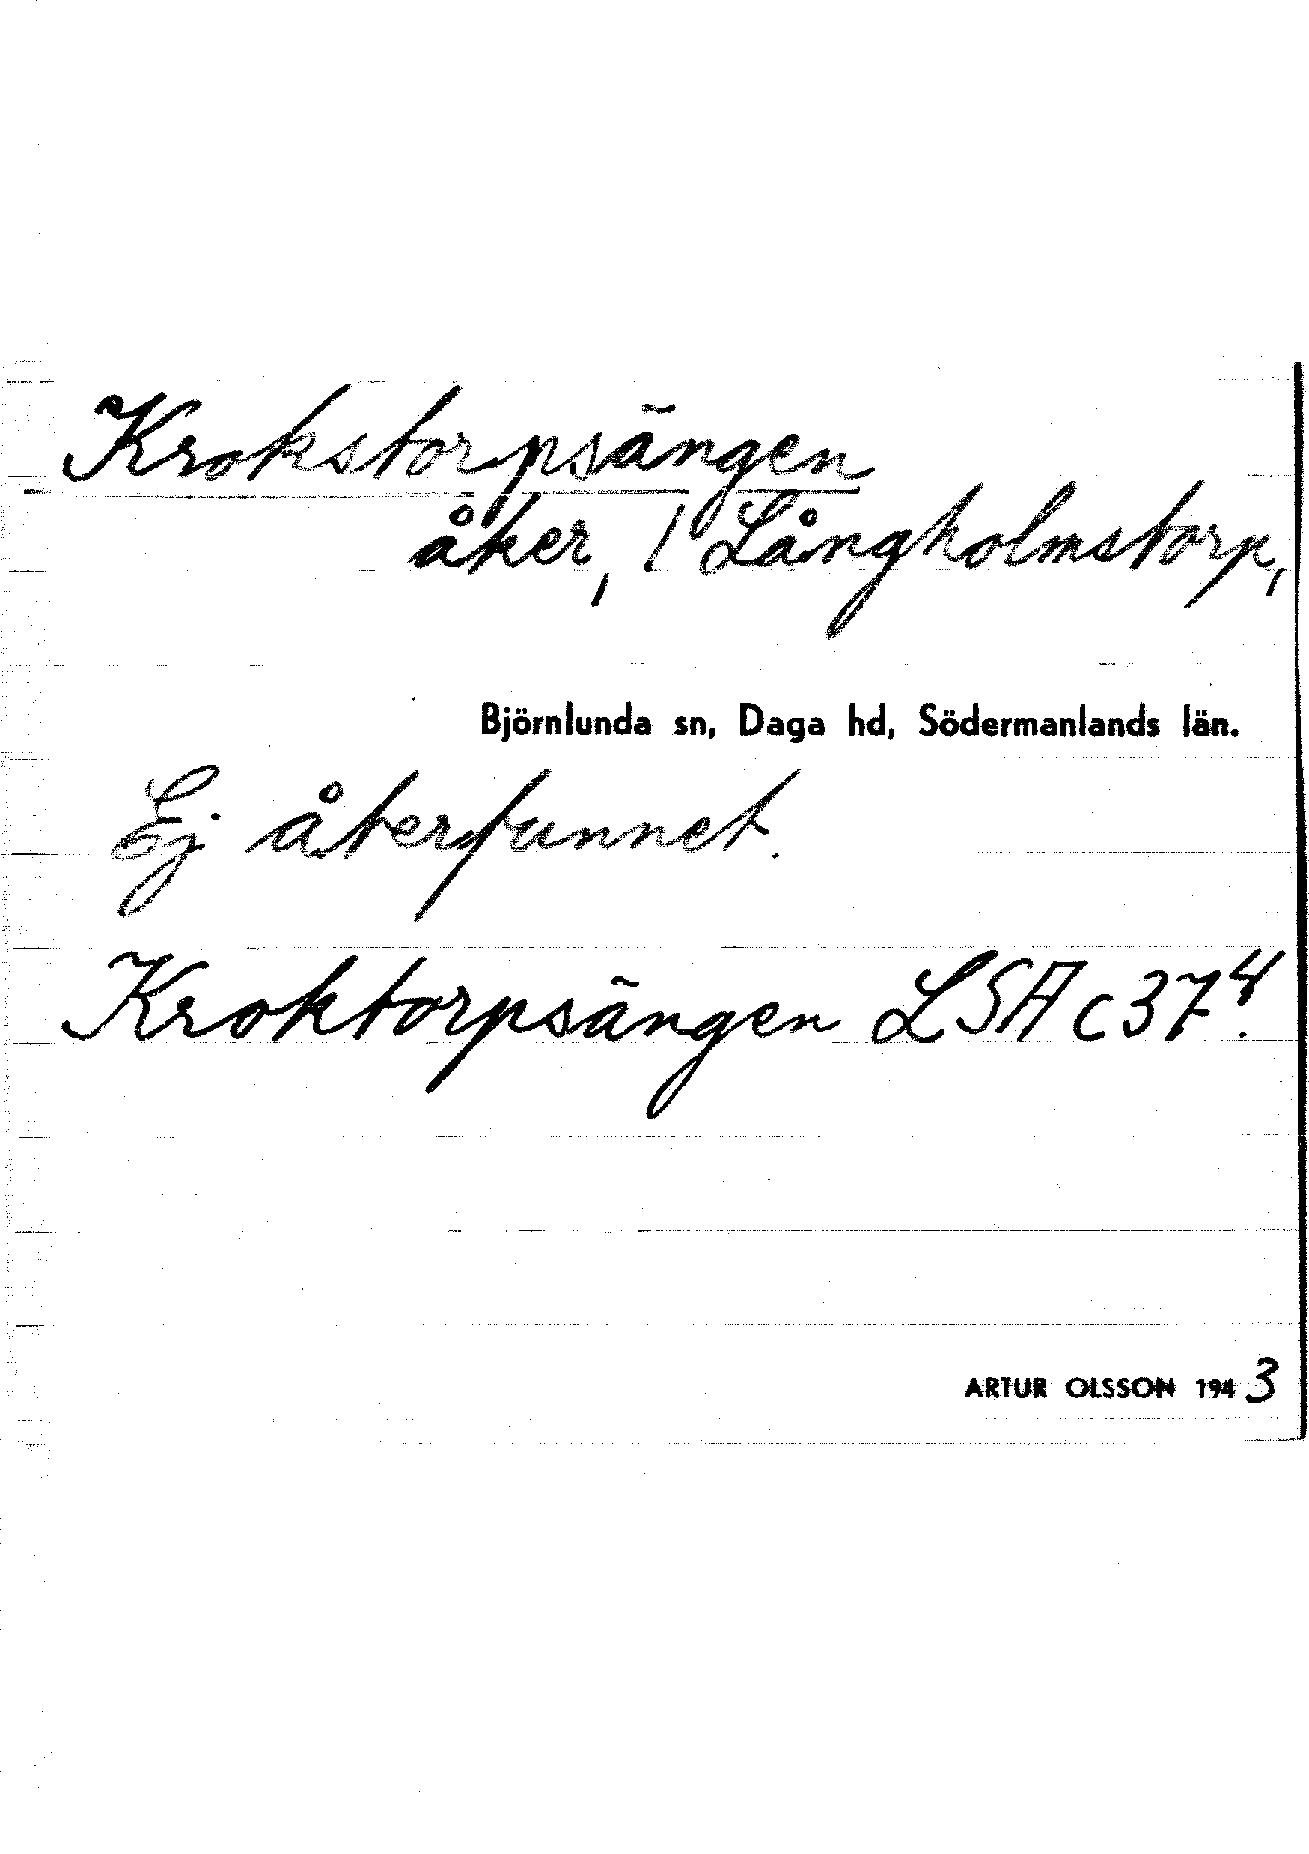 Krokstorpsängen
åker, / Långholmstorp,
Björnlunda sn, Daga hd, Södermanlands län.
Ej återfunnet.
Kroktorpsängen LSA C37⁴.
ARTUR OLSSON 1943